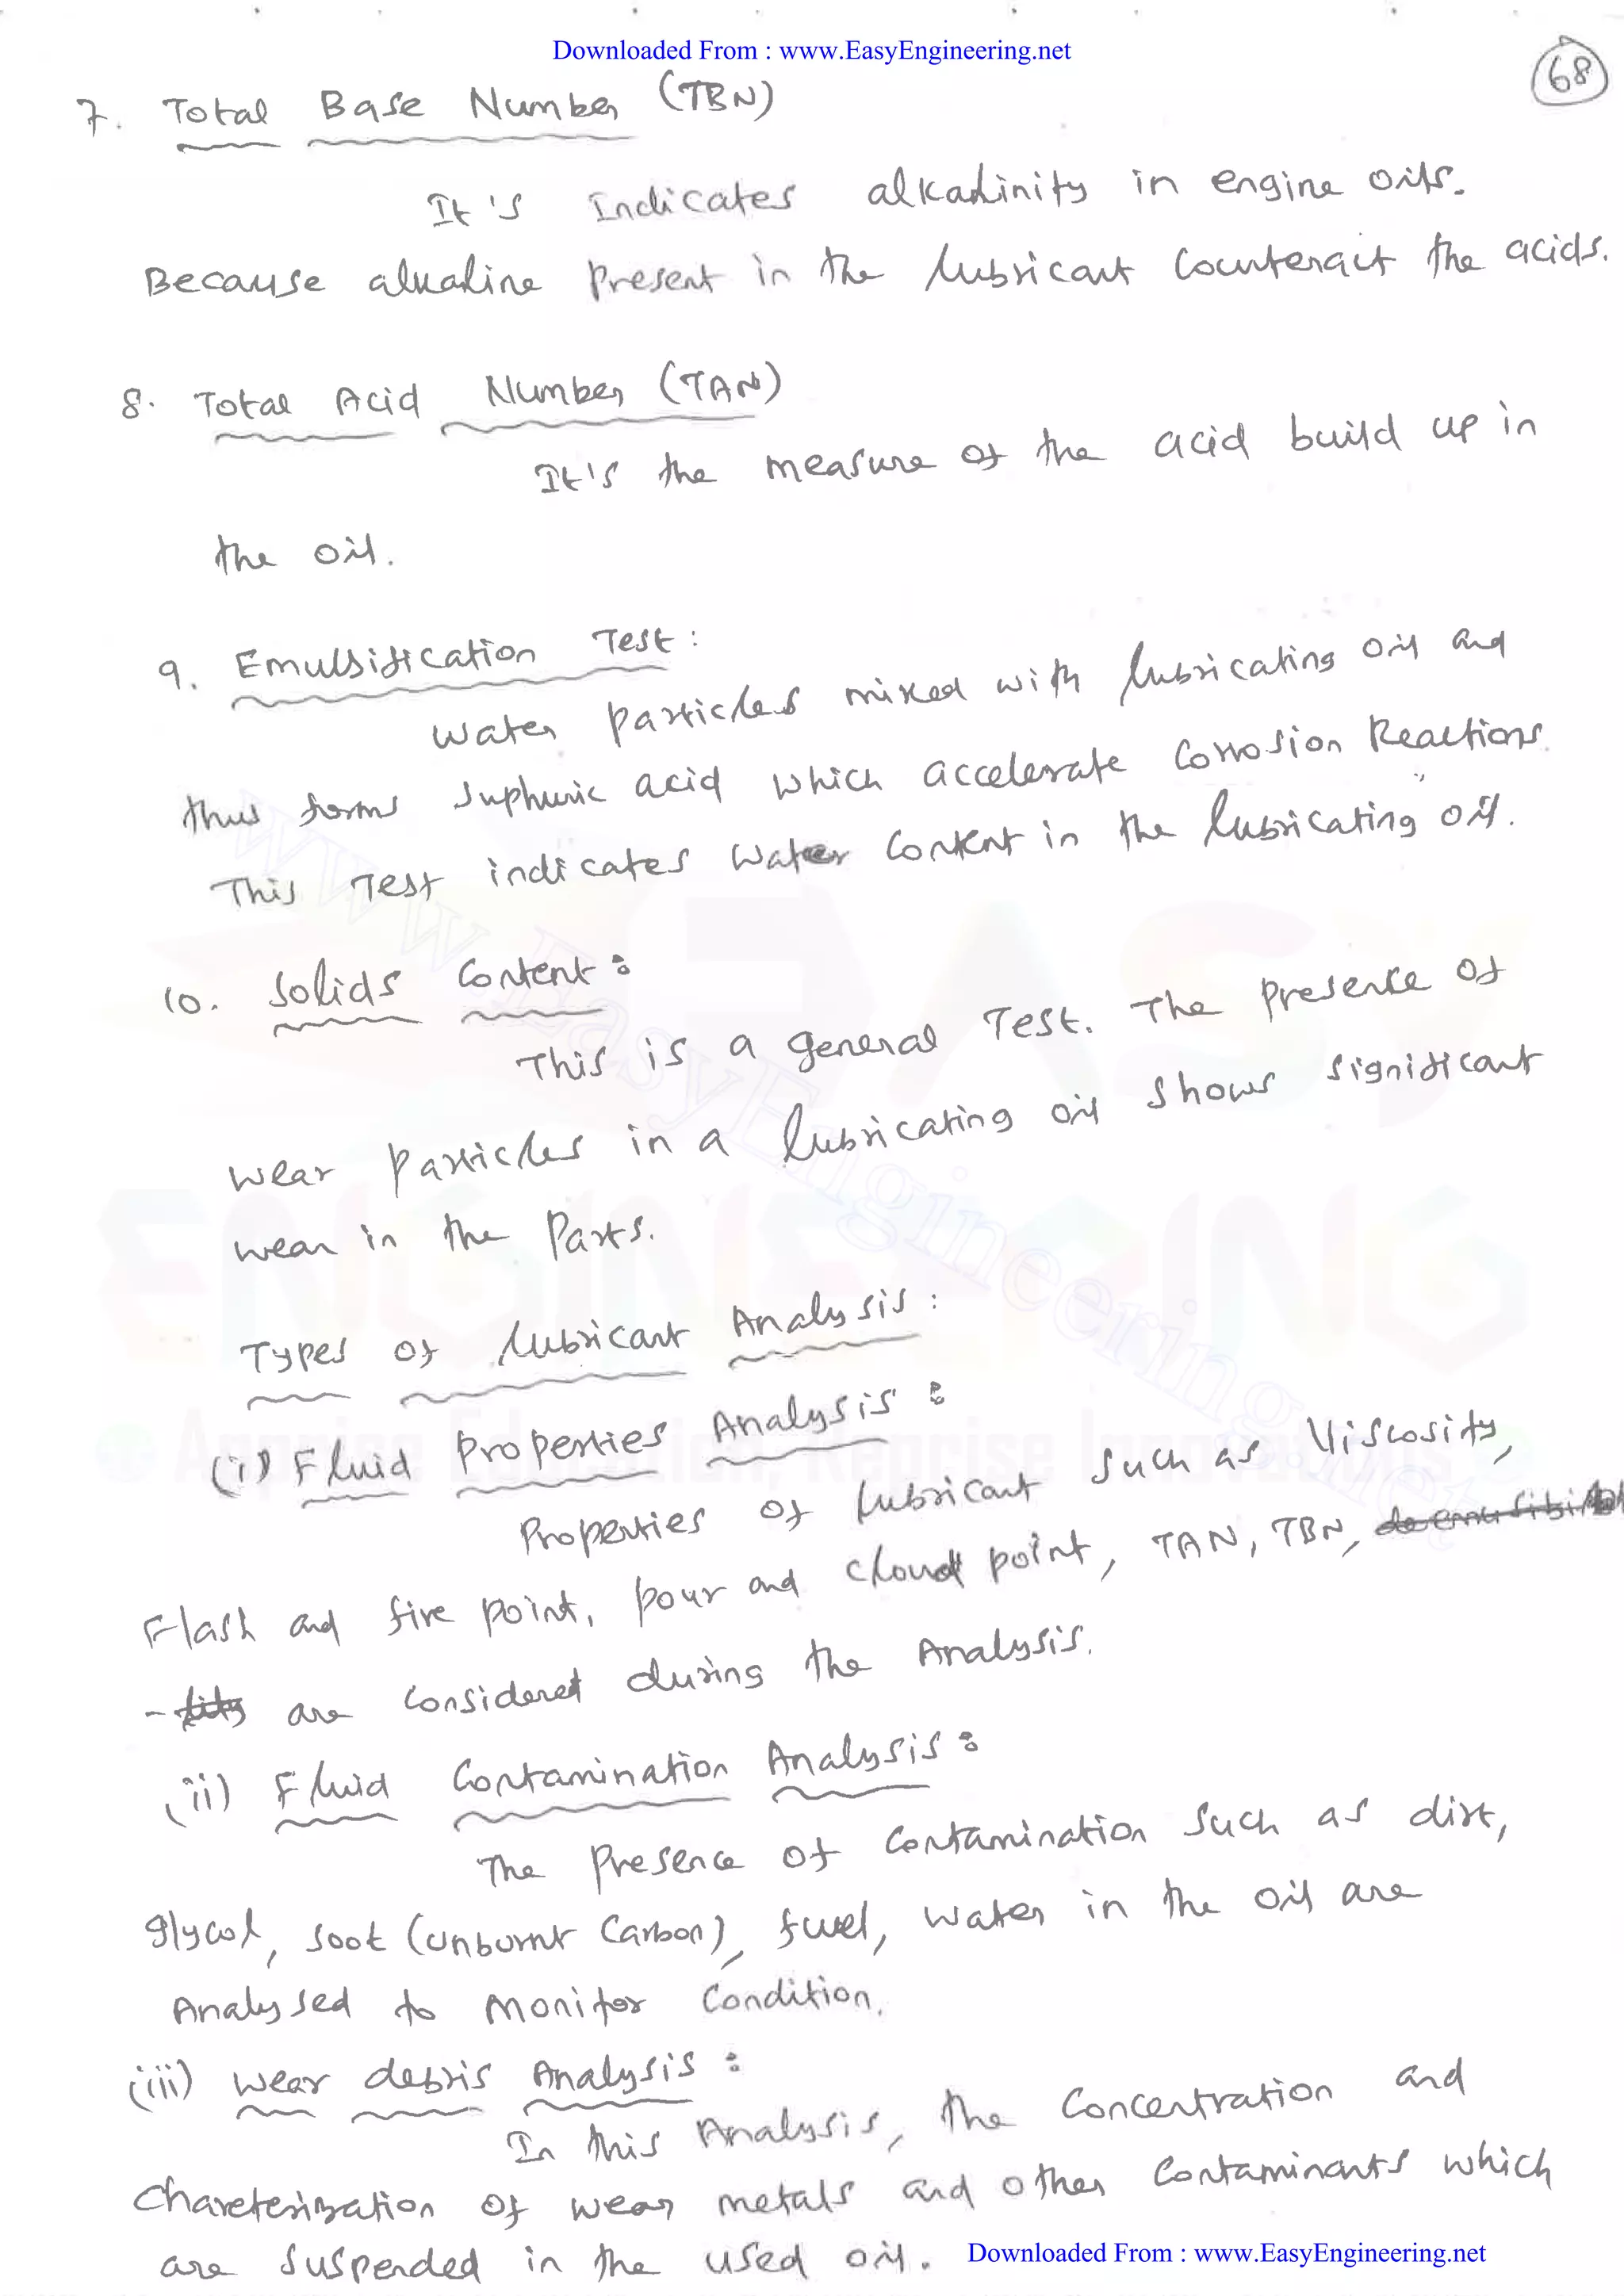 Downloaded From : www.EasyEngineering.net
68
7. Total Base Number (TBN)
It's Indicates alkalinity in engine oils.
Because alkaline present in the lubricant Counteract the acids.
8. Total Acid Number (TAN)
It's the measure of the acid build up in
the oil.
9. Emulsification Test :
Water particles mixed with lubricating oil and
thus forms Suphuric acid which accelerate Corrosion Reactions.
This Test indicates Water Content in the lubricating oil.
10. Solids Content :
This is a general Test. The Presence of
Wear particles in a lubricating oil shows significant
wear in the Parts.
Types of lubricant Analysis :
(i) Fluid Properties Analysis :
Properties of lubricant such as Viscosity,
Flash and fire point, pour and cloud point, TAN, TBN,
are Considered during the Analysis.
(ii) Fluid Contamination Analysis :
The Presence of Contamination Such as dirt,
glycol, soot (unburnt Carbon), fuel, water in the oil are
Analysed to Monitor Condition.
(iii) Wear debris Analysis :
In this Analysis, the Concentration and
Chareterization of wear metals and other Contaminants which
are suspended in the used oil.
Downloaded From : www.EasyEngineering.net
www.EasyEngineering.net
EASY
ENGINEERING
Apprise Education, Reprise Innovations